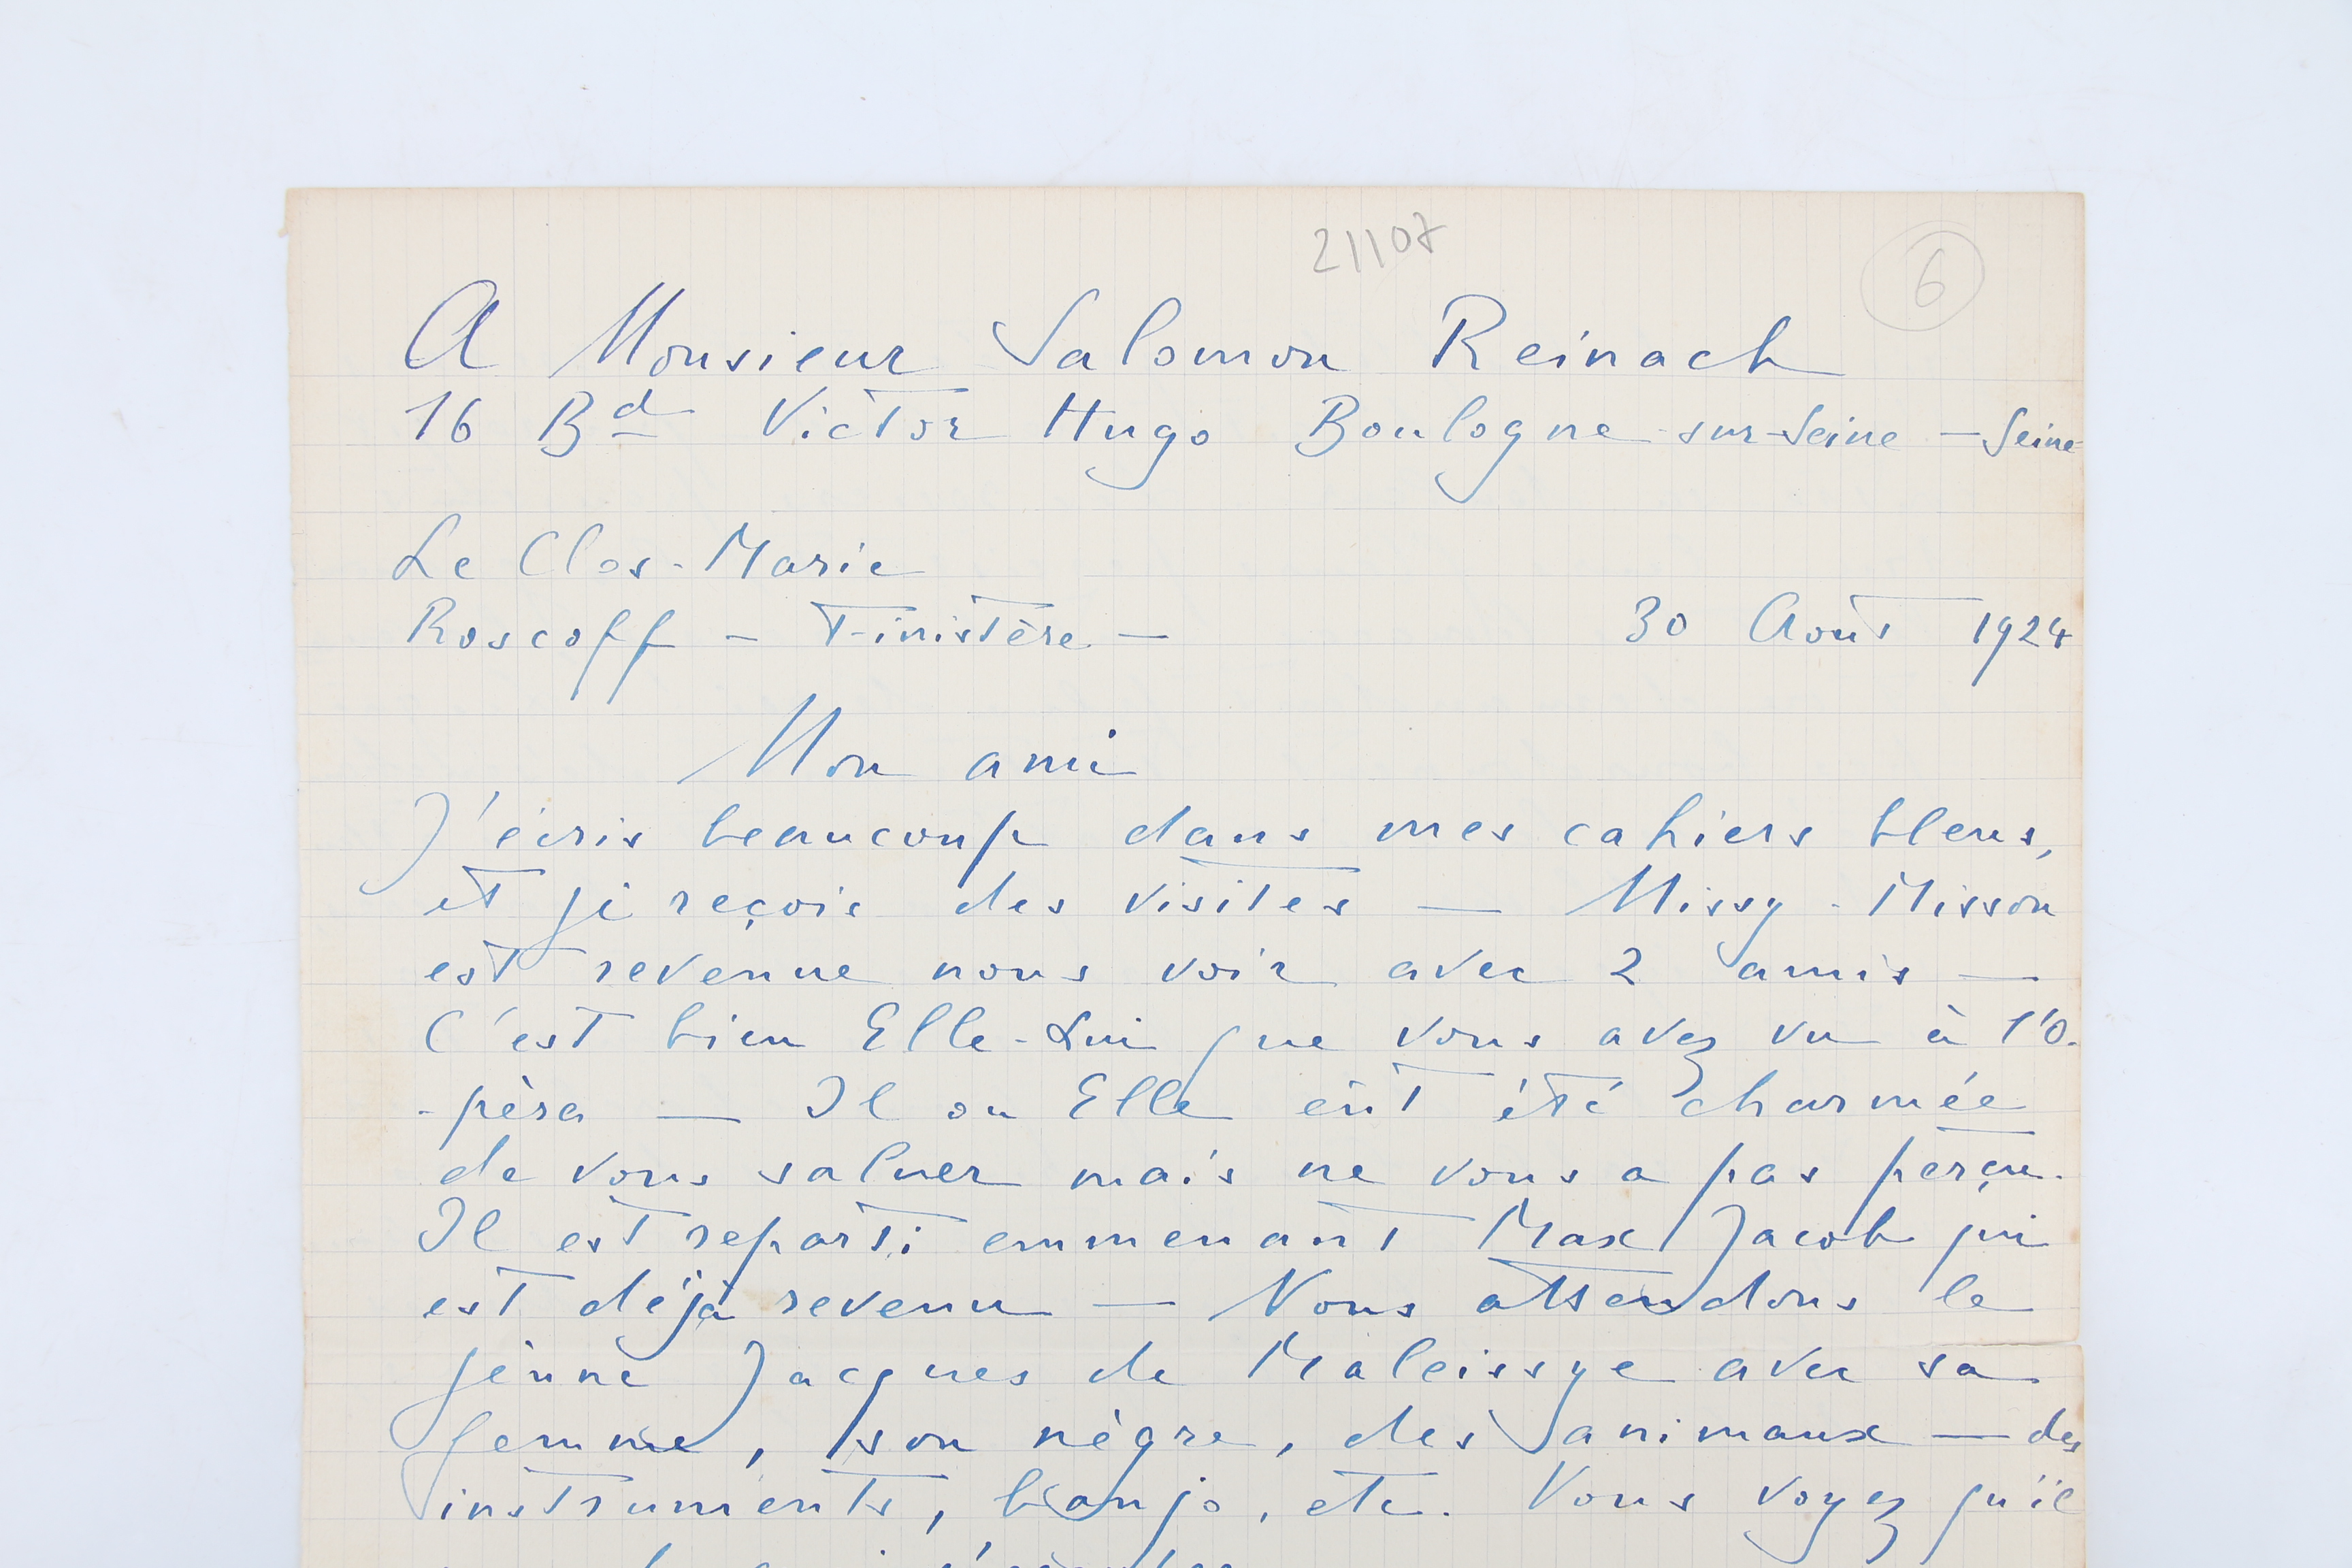 21107
6
A Monsieur Salomon Reinach
16 Bd Victor Hugo Boulogne-sur-Seine - Seine
Le Clos-Marie
Roscoff - Finistère - 30 Août 1924
Mon ami
J'écris beaucoup dans mes cahiers bleus,
et je reçois des visites — Missy-Misson
est revenue nous voir avec 2 amis —
C'est bien Elle-Lui que vous avez vu à l'O-
-pèra — Il ou Elle eût été charmée
de vous saluer mais ne vous a pas perçu.
Il est reparti emmenant Max Jacob qui
est déjà revenu — Nous attendons le
jeune Jacques de Maleissye avec sa
femme, son nègre, des animaux — des
instruments, banjo, etc. Vous voyez qu'il